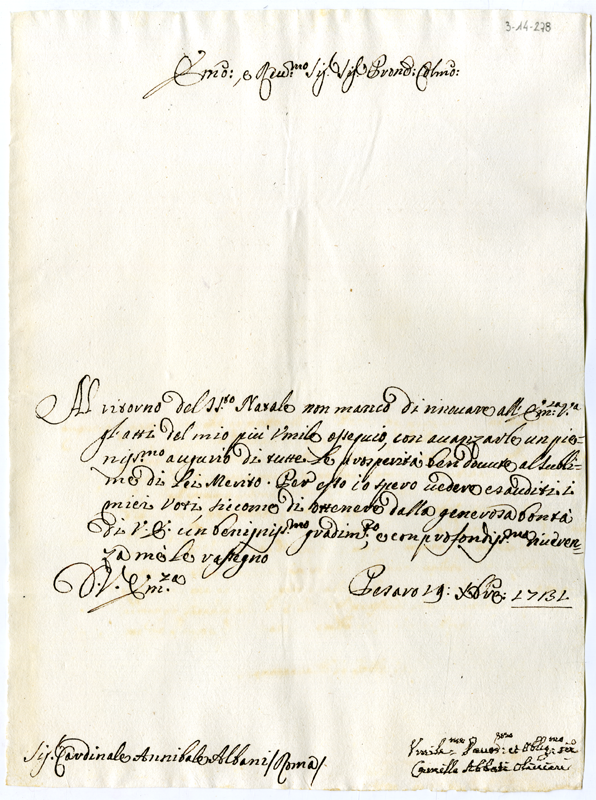 3-14-278
Emo: e Reu.mo Sig. Sig. Prond: Colmo:
Al ritorno del SS.to Natale non manco di rinouare all' Em.za V.a
gl' atti del mio più Vmile ossequio, con auanzarle un pie-
nissmo augurio di tutte le prosperità ben douute al subli-
me di Lei Merito. Per esto io spero uedere esauditi i
miei Voti siccome di ottenere dalla generosa bontà
di V. E. un benigniss.mo gradim.to, e con profondiss.ma riueren-
za me le rassegno
D. V. Em.za
Pesaro 19: Xbre: 1731
Sig. Cardinale Annibale Albani / Roma /
Vmilis.mo Deuot: et Oblig.mo ser
Camillo Abbati Oliuieri